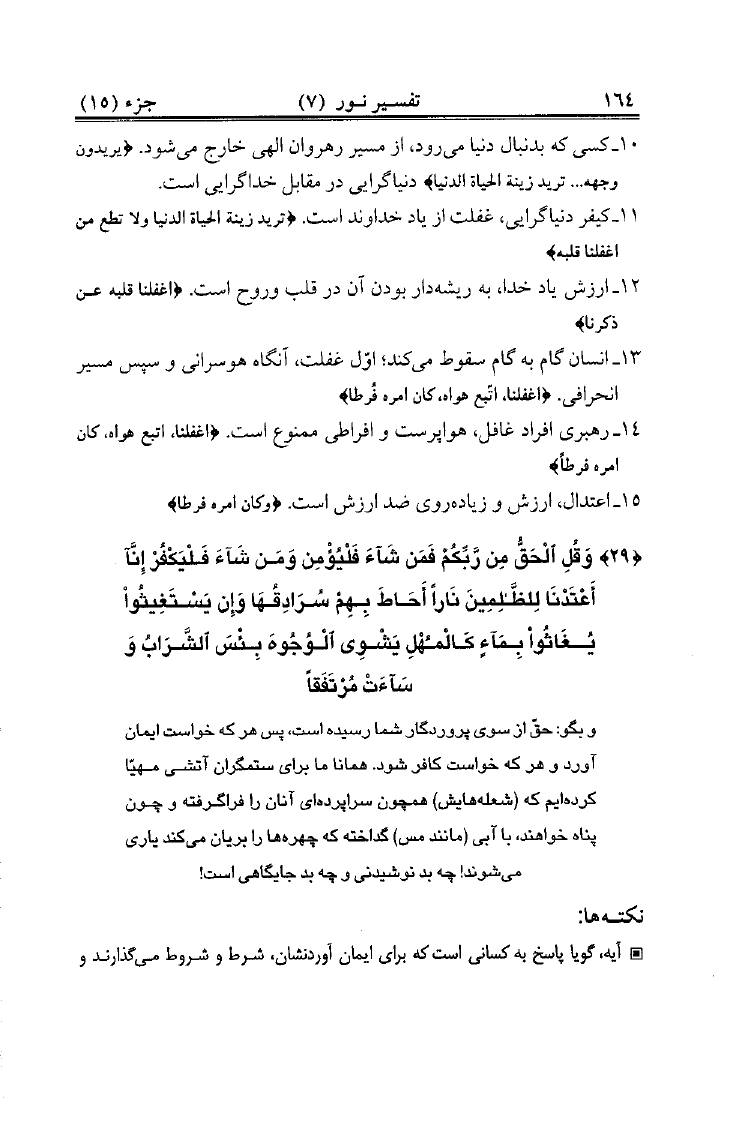 ١٦٤ تفسیر نور (٧) جزء (١٥)
١٠ـ کسی که بدنبال دنیا می‌رود، از مسیر رهروان الهی خارج می‌شود. ﴿یریدون
وجهه... ترید زینة الحیاة الدنیا﴾ دنیاگرایی در مقابل خداگرایی است.
١١ـ کیفر دنیاگرایی، غفلت از یاد خداوند است. ﴿ترید زینة الحیاة الدنیا ولا تطع من
اغفلنا قلبه﴾
١٢ـ ارزش یاد خدا، به ریشه‌دار بودن آن در قلب وروح است. ﴿اغفلنا قلبه عـن
ذکرنا﴾
١٣ـ انسان گام به گام سقوط می‌کند؛ اوّل غفلت، آنگاه هوسرانی و سپس مسیر
انحرافی. ﴿اغفلنا، اتّبع هواه، کان امره فُرطا﴾
١٤ـ رهبری افراد غافل، هواپرست و افراطی ممنوع است. ﴿اغفلنا، اتبع هواه، کان
امره فرطاً﴾
١٥ـ اعتدال، ارزش و زیاده‌روی ضد ارزش است. ﴿وکان امره فرطا﴾
﴿٢٩﴾ وَقُلِ ٱلْحَقُّ مِن رَّبِّكُمْ فَمَن شَآءَ فَلْيُؤْمِن وَمَـن شَآءَ فَـلْيَكْفُرْ إِنَّآ
أَعْتَدْنَا لِلظَّـٰلِمِينَ نَاراً أَحَاطَ بِـهِمْ سُرَادِقُـهَا وَإِن يَسْـتَغِيثُواْ
يُـغَاثُواْ بِـمَآءٍ كَـالْمُـهْلِ يَشْـوِى ٱلْـوُجُوهَ بِـئْسَ ٱلشَّـرَابُ وَ
سَآءَتْ مُرْتَفَقاً
و بگو: حقّ از سوی پروردگار شما رسیده است، پس هر که خواست ایمان
آورد و هر که خواست کافر شود. همانا ما برای ستمگران آتشی مـهیّا
کرده‌ایم که (شعله‌هایش) همچون سراپرده‌ای آنان را فراگرفته و چـون
پناه خواهند، با آبی (مانند مس) گداخته که چهره‌ها را بریان می‌کند یاری
می‌شوند! چه بد نوشیدنی و چه بد جایگاهی است!
نکته‌ها:
▣ آیه، گویا پاسخ به کسانی است که برای ایمان آوردنشان، شـرط و شروط مـی‌گذارنـد و